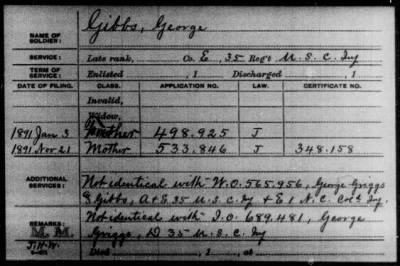 Gibbs, George
NAME OF SOLDIER:
SERVICE: Late rank, Co. E, 35 Reg't U.S.C. Inf
TERM OF SERVICE: Enlisted , 1 Discharged , 1
DATE OF FILING. CLASS. APPLICATION NO. LAW. CERTIFICATE NO.
Invalid,
Widow,
1891 Jan 3 Mother 498.925 J
1891 Nov 21 Mother 533.846 J 348.158
ADDITIONAL SERVICES: Not identical with W.O. 565.956, George Griggs
& Gibbs, A & E. 35 U.S.C. Inf & E 1 N.C. Col'd Inf.
REMARKS: Not identical with I.O. 689.481, George
M. M. Griggs, D 35 U.S.C. Inf
J.H.W. Died , 1 , at